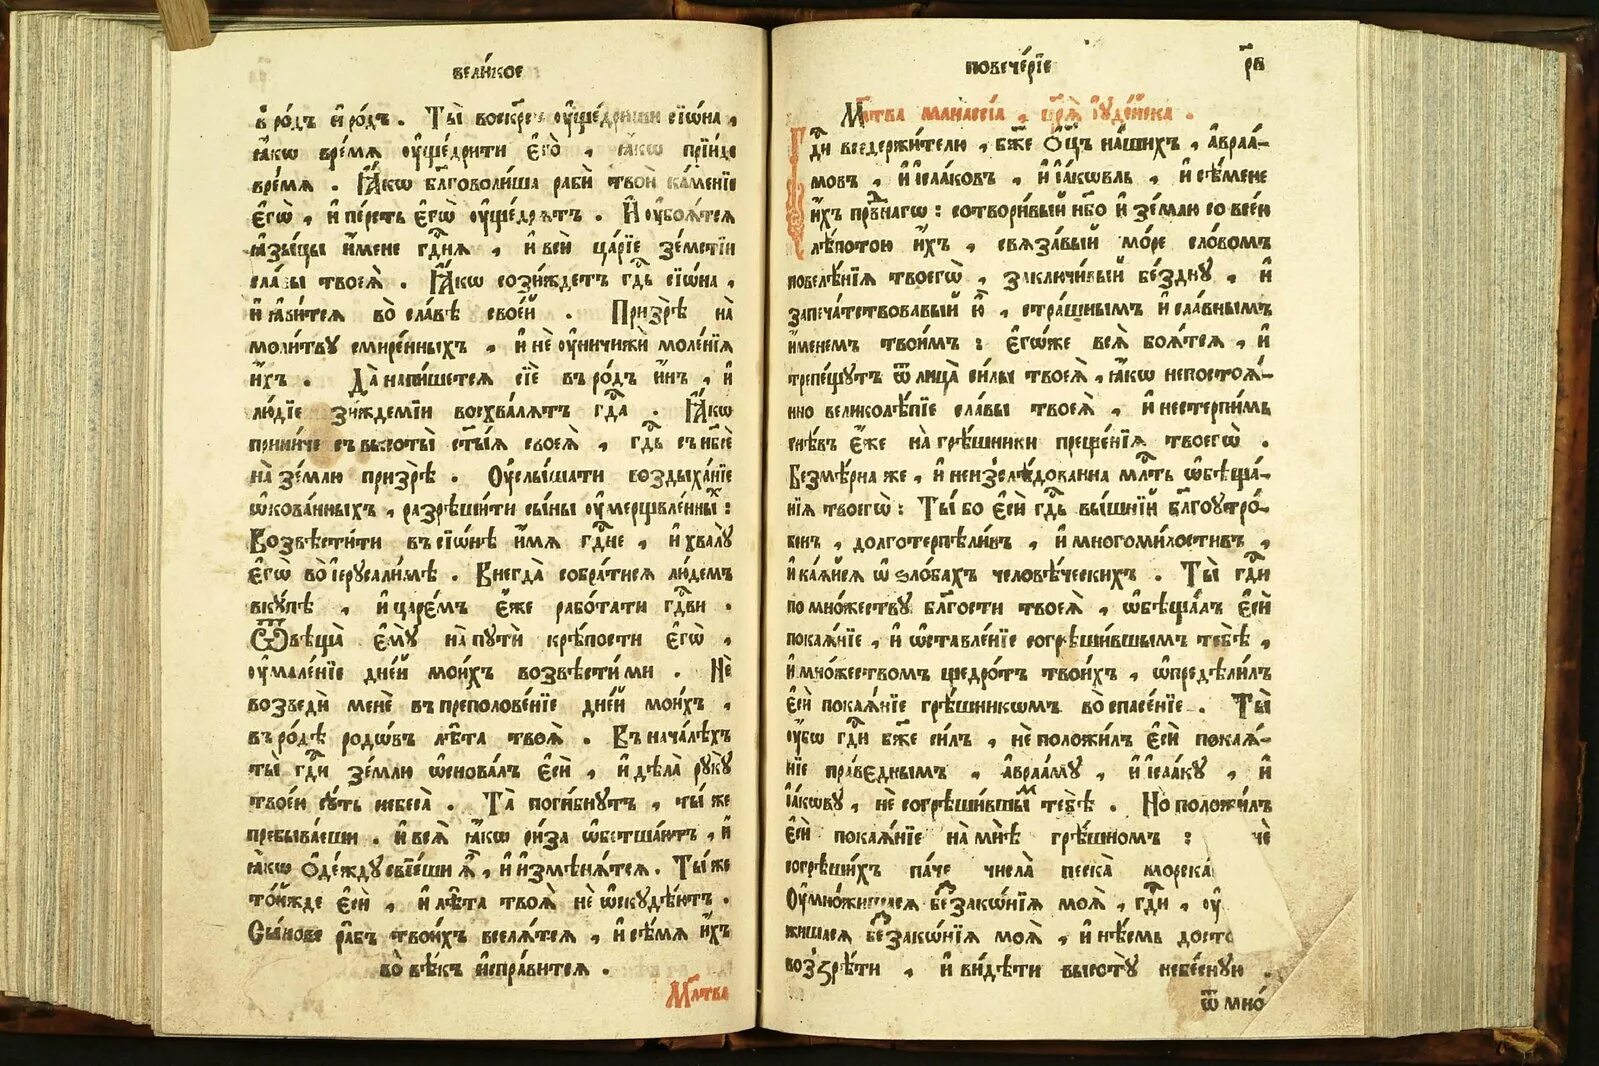 вели́кое
в̾ ро́дъ и҆ ро́дъ . Ты̀ воскре́с оу҆ще́дриши сїѡ́на ,
ꙗ҆́кѡ вре́мѧ оу҆ще́дрити є҆го̀ , ꙗ҆́кѡ прїи́де
вре́мѧ . Ꙗ҆́кѡ бл҃говоли́ша рабѝ твоѝ ка́менїе
є҆гѡ̀ , и҆ пе́рсть є҆гѡ̀ оу҆ще́дрѧтъ . И҆ оу҆боѧ́тсѧ
ꙗ҆зы́цы и҆́мене гд҇нѧ , и҆ всѝ ца́рїе зе́мстїи
сла́вы твоеѧ̀ . Ꙗ҆́кѡ сози́ждетъ гд҇ь сїѡ́на ,
и҆ ꙗ҆ви́тсѧ во̀ сла́вѣ свое́й . Призрѣ̀ на̀
моли́тву смире́нныхъ , и҆ нѐ оу҆ничижѝ моле́нїѧ
и҆́хъ . Да̀ напи́шетсѧ сїѐ в ро́дъ и҆́нъ , и҆
лю́дїе зи́ждемїи восхва́лѧтъ гд҇а . Ꙗ҆́кѡ
прини́че съ высоты̀ ст҃ы́ѧ своеѧ̀ , гд҇ь съ нб҃сѐ
на̀ зе́млю призрѣ̀ . Оу҆слы́шати воздыха́нїе
ѡ҆кова́нныхъ , разрѣши́ти сы́ны оу҆мерщвле́нныⷯ :
Возвѣсти́ти въ сїѡ́нѣ и҆́мѧ гд҇не , и҆ хвалу̀
є҆гѡ̀ во і҆ерусали́мѣ . Внегда̀ собра́тисѧ лю́демъ
вку́пѣ , и҆ царе́мъ є҆́же рабо́тати гд҇ви .
Ѿвѣща̀ є҆му̀ на путѝ крѣ́пости є҆гѡ̀ ,
оу҆мале́нїе дне́й мои́хъ возвѣсти́ ми . Нѐ
возведѝ менѐ въ преполове́нїе дне́й мои́хъ ,
въ ро́дѣ родо́въ лѣ́та твоѧ̀ . Въ нача́лѣхъ
ты̀ гд҇и зе́млю ѡ҆снова́лъ є҆сѝ , и҆ дѣ́ла руку̀
твое́и су́ть небеса̀ . Та̀ поги́бнутъ , ты́ же
пребыва́еши . и҆ всѧ̀ ꙗ҆́кѡ ри́за ѡ҆бетша́ютъ , и҆
ꙗ҆́кѡ ѻ҆де́жду свїе́ши ѧ҆̀ , и҆ и҆змѣнѧ́тсѧ . Ты́ же
то́йжде є҆сѝ , и҆ лѣ́та твоѧ̀ нѐ ѡ҆скудѣ́ютъ .
Сы́нове ра́бъ твои́хъ вселѧ́тсѧ , и҆ сѣ́мѧ и҆́хъ
во̀ вѣ́къ и҆спра́витсѧ .
Мл҃тва
повече́рїе р҃в
Мл҃тва манассі́а , цр҃ѧ̀ і҆уде́йска .
Гд҇и вседержи́телю , бж҃е ѻ҆ц҃ъ на́шихъ , а҆враа́-
мовъ , и҆ і҆са́ковъ , и҆ і҆а́кѡвль , и҆ сѣ́мене
и҆́хъ пра́внагѡ : сотвори́вый нб҃о и҆ зе́млю со все́ю
лѣ́потою и҆́хъ , свѧза́вый мо́ре сло́вомъ
повелѣ́нїѧ твоегѡ̀ , заключи́вый бе́здну , и҆
запеча́тствовавый ю҆̀ , стра́шнымъ и҆ сла́внымъ
и҆́менемъ твои́мъ : є҆гѡ́же всѧ̀ боѧ́тсѧ , и҆
трепе́щутъ ѿ лица̀ си́лы твоеѧ̀ , ꙗ҆́кѡ непостоѧ́-
нно великолѣ́пїе сла́вы твоеѧ̀ , и҆ нестерпи́мь
гнѣ́въ є҆́же на̀ грѣ́шники преще́нїѧ твоегѡ̀ .
Безмѣ́рна же , и҆ неизслѣ́дованна мл҇ть ѡ҆бѣща́-
нїѧ твоегѡ̀ : Ты̀ бо є҆сѝ гд҇ь вы́шнїй бл҃гоутро́-
бенъ , долготерпѣли́въ , и҆ многоми́лостивъ ,
и҆ ка́ѧйсѧ ѡ҆ ѕло́бахъ человѣ́ческихъ . Ты̀ гд҇и
по мно́жеству бл҃гости твоеѧ̀ , ѡ҆бѣща́лъ є҆сѝ
покаѧ́нїе , и҆ ѡ҆ставле́нїе согрѣши́вшымъ тебѣ̀ ,
и҆ мно́жествомъ щедро́тъ твои́хъ , ѡ҆предѣли́лъ
є҆сѝ покаѧ́нїе грѣ́шникѡмъ во спасе́нїе . Ты̀
оу҆́бѡ гд҇и бж҃е си́лъ , нѐ положи́лъ є҆сѝ покаѧ́-
нїе пра́веднымъ , а҆враа́му , и҆ і҆са́ку , и҆
і҆а́кову , не согрѣши́вшыⷨ тебѣ̀ . Но положи́лъ
є҆сѝ покаѧ́нїе на̀ мнѣ̀ грѣ́шномъ :
согрѣши́хъ па́че числа̀ песка̀ морска́
Оу҆мно́жишасѧ беззако́нїѧ моѧ̀ , гд҇и , оу҆
жишасѧ беззако́нїѧ моѧ̀ , и҆ нѣ́смь досто
воззрѣ́ти , и҆ ви́дѣти высоту̀ небе́сную .
ѿ мно́